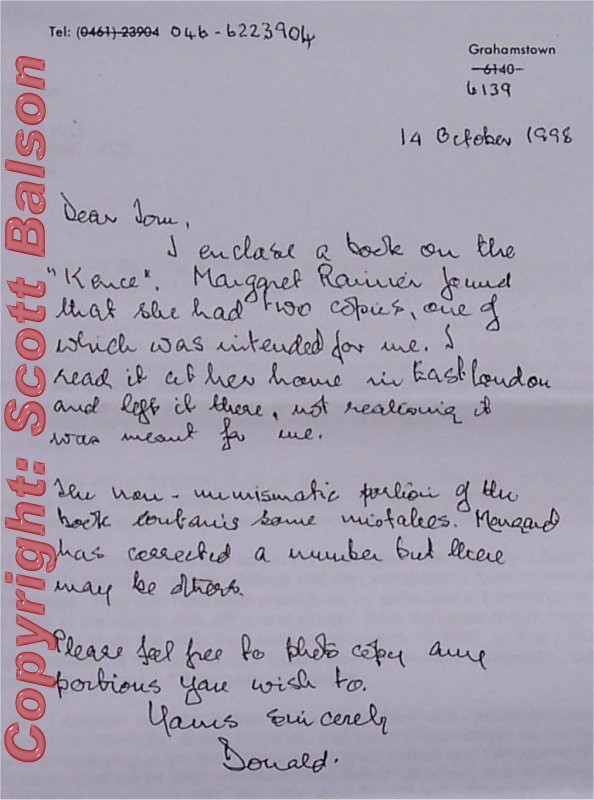 Tel: (0461) 23904 046-6223904
Grahamstown
6140
6139
14 October 1998
Dear Tom,
I enclose a book on the
"Kence". Margaret Rainier found
that she had two copies, one of
which was intended for me. I
read it at her home in East London
and left it there, not realising it
was meant for me.
The non-numismatic portion of the
book contains some mistakes. Margaret
has corrected a number but there
may be others.
Please feel free to photo copy any
portions you wish to.
Yours sincerely
Donald.
Copyright: Scott Balson